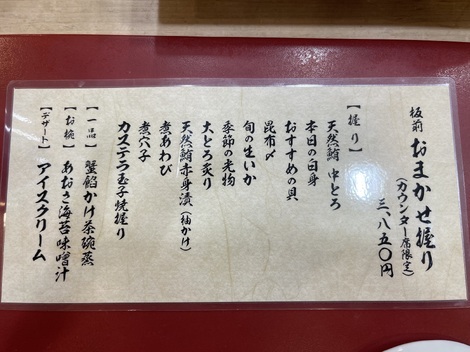 板前 おまかせ握り
(カウンター席限定)
三、八五〇円
【握り】
天然鮪 中とろ
本日の白身
おすすめの貝
昆布〆
旬の生いか
季節の光物
大とろ炙り
天然鮪赤身漬(柚かけ)
煮あわび
煮穴子
カステラ玉子焼握り
【一品】 蟹餡かけ茶碗蒸
【お椀】 あおさ海苔味噌汁
【デザート】 アイスクリーム